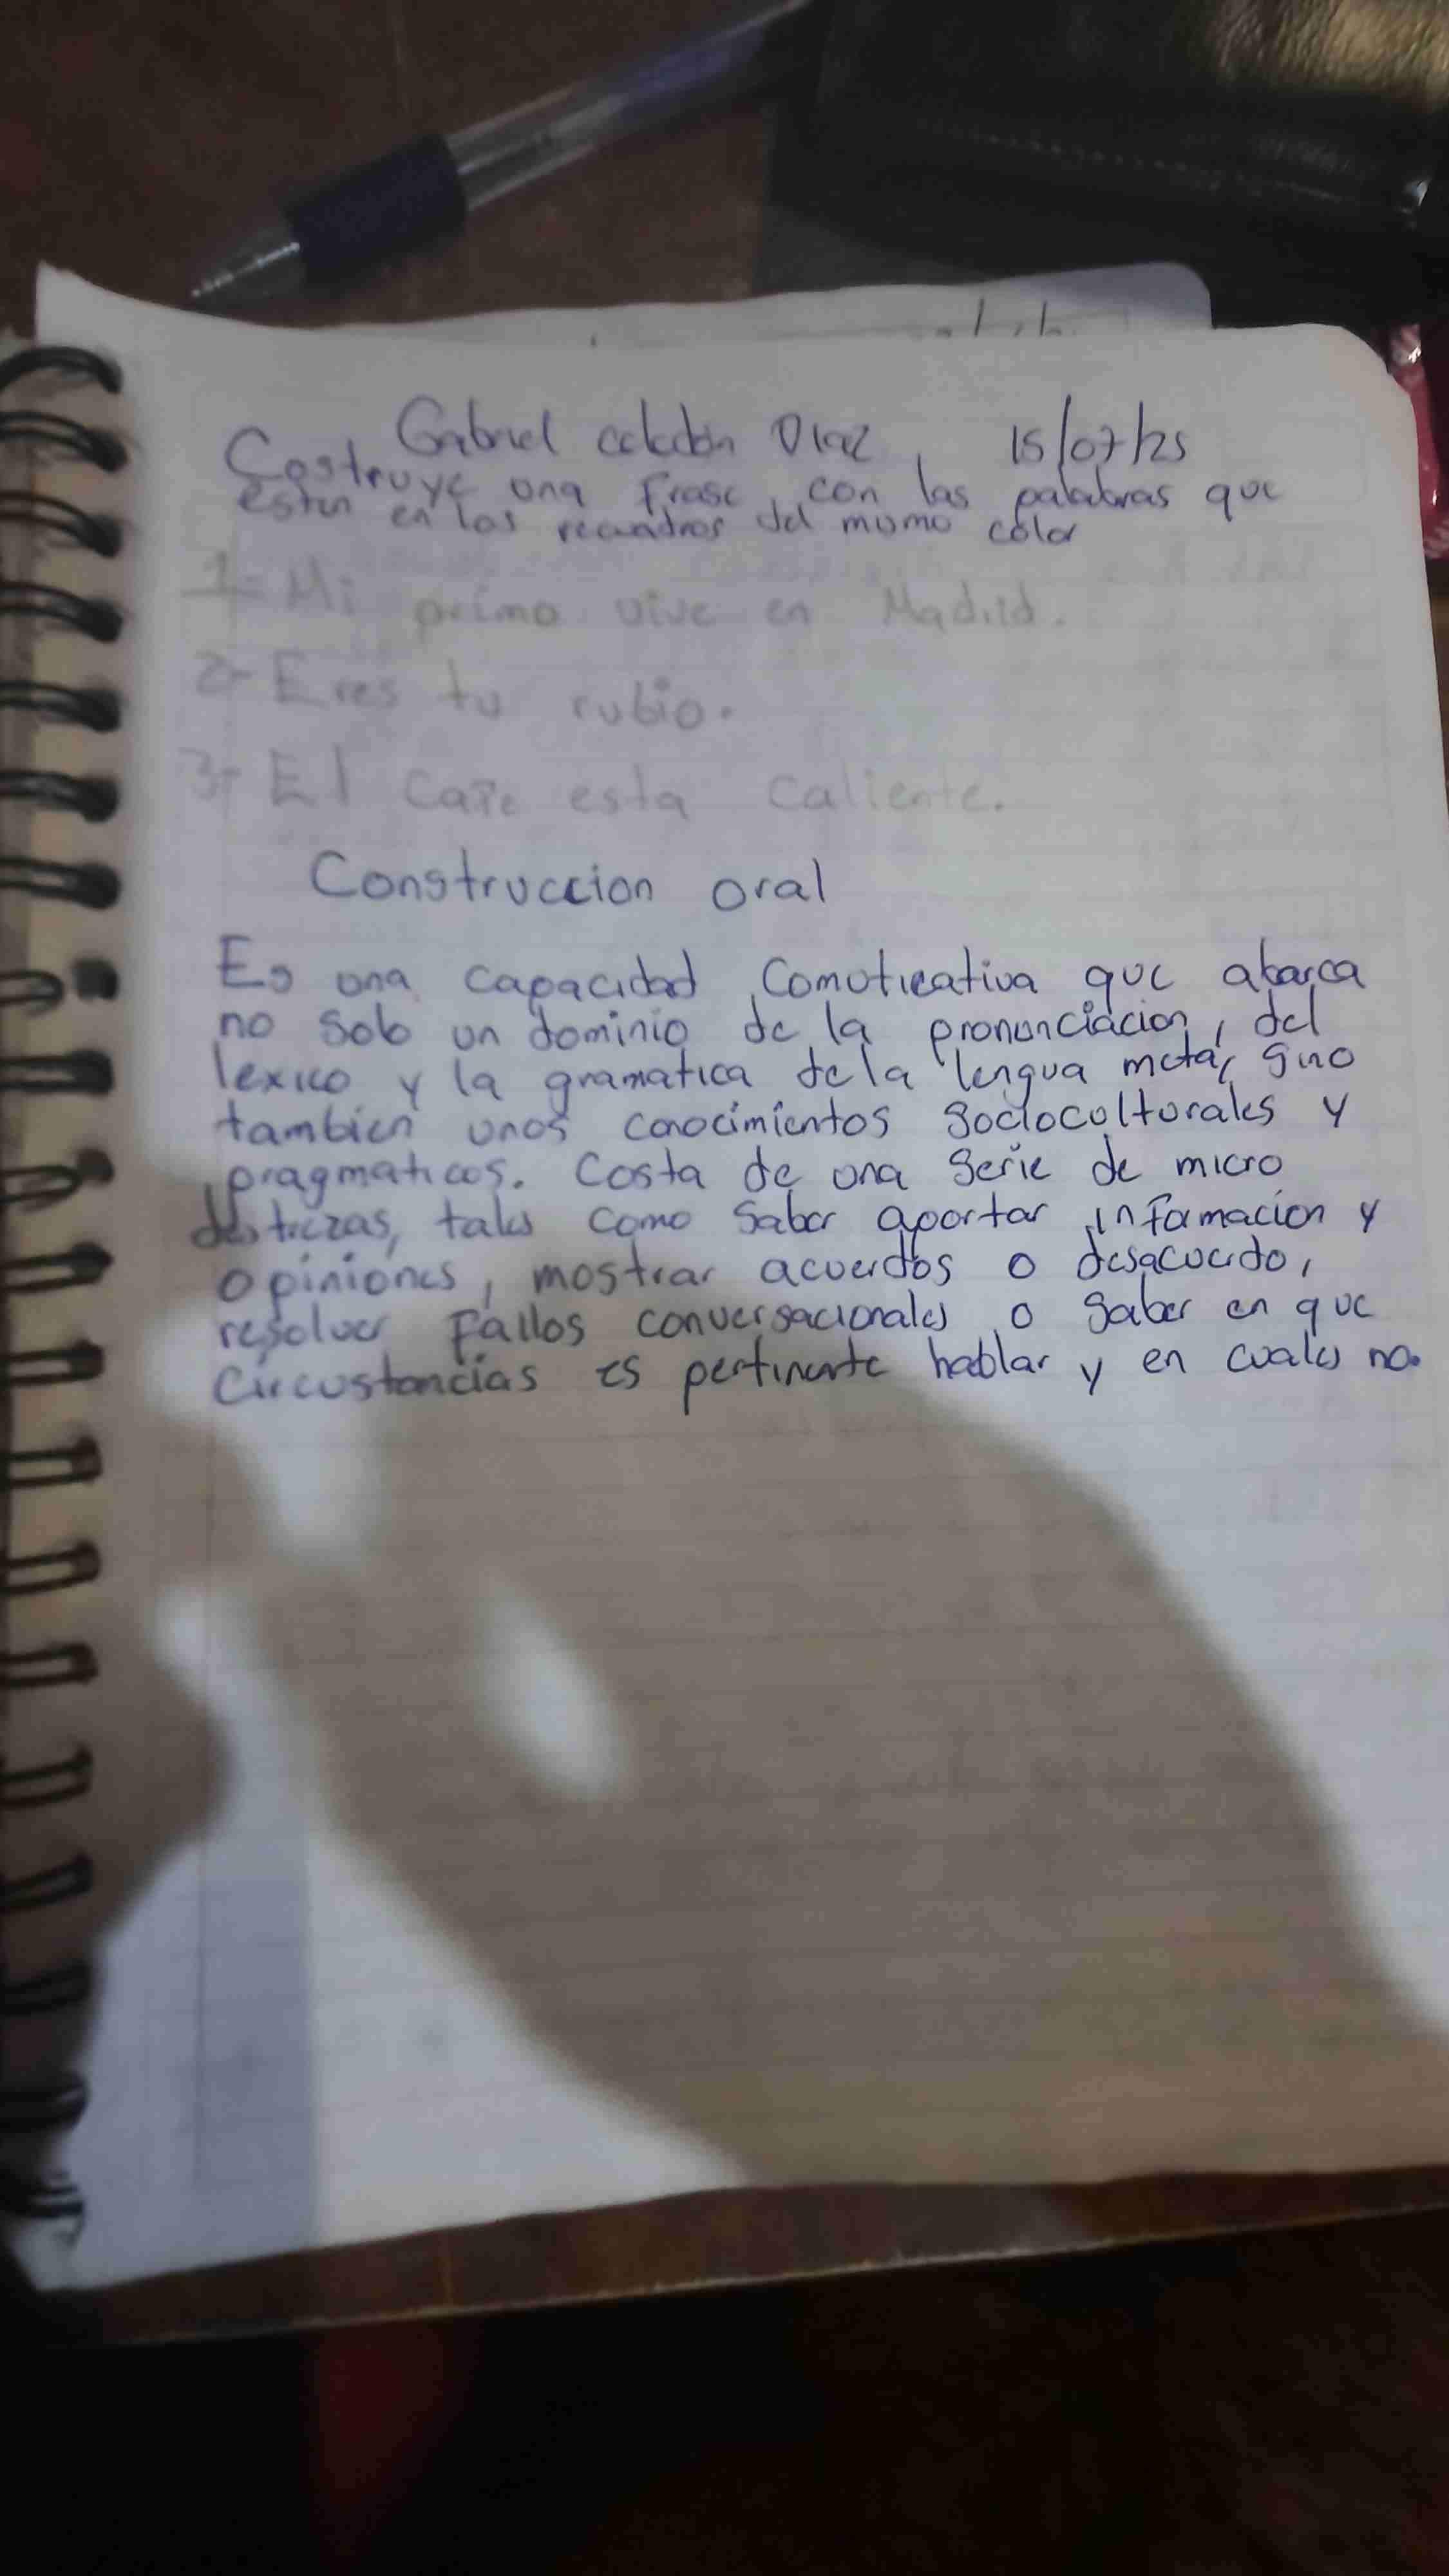 Gabriel celedon Diaz, 15/07/25
Costruye una frase, con las palabras que
estan en los recuadros del mismo color
1- Mi primo vive en Madrid.
2- Eres tu rubio.
3- El cafe esta caliente.
Construccion oral
Es una capacidad comunicativa que abarca
no solo un dominio de la pronunciacion, del
lexico y la gramatica de la lengua meta, sino
tambien unos conocimientos socioculturales y
pragmaticos. Costa de una serie de micro
destrezas, tales como saber aportar informacion y
opiniones, mostrar acuerdos o desacuerdo,
resolver fallos conversacionales o saber en que
circustancias es pertinente hablar y en cuales no.